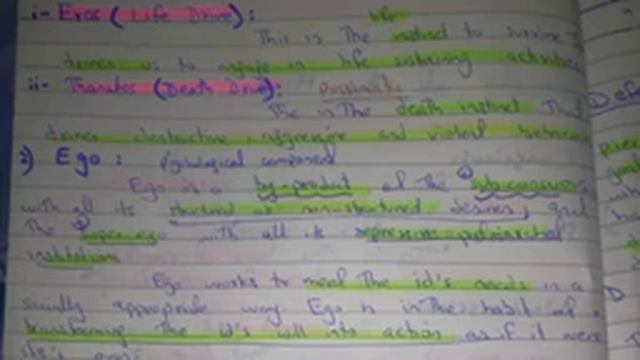 i- Eros (Life Drive):
life
This is the instinct to survive
drives us to engage in life sustaining activities
ii- Thanatos (Death Drive): Pessimistic
The is the death instinct that
drives destructive, aggressive and violent behaviour
2) Ego: psychological component
Ego is a by-product of the subconscious
with all its structured or non-structured desires, and
the super ego with all its repressive patriarchal
institutions
Ego works to meet the id's needs in a
socially appropriate way. Ego is in the habit of
transforming the id's will into action as if it were
its
Defe
D